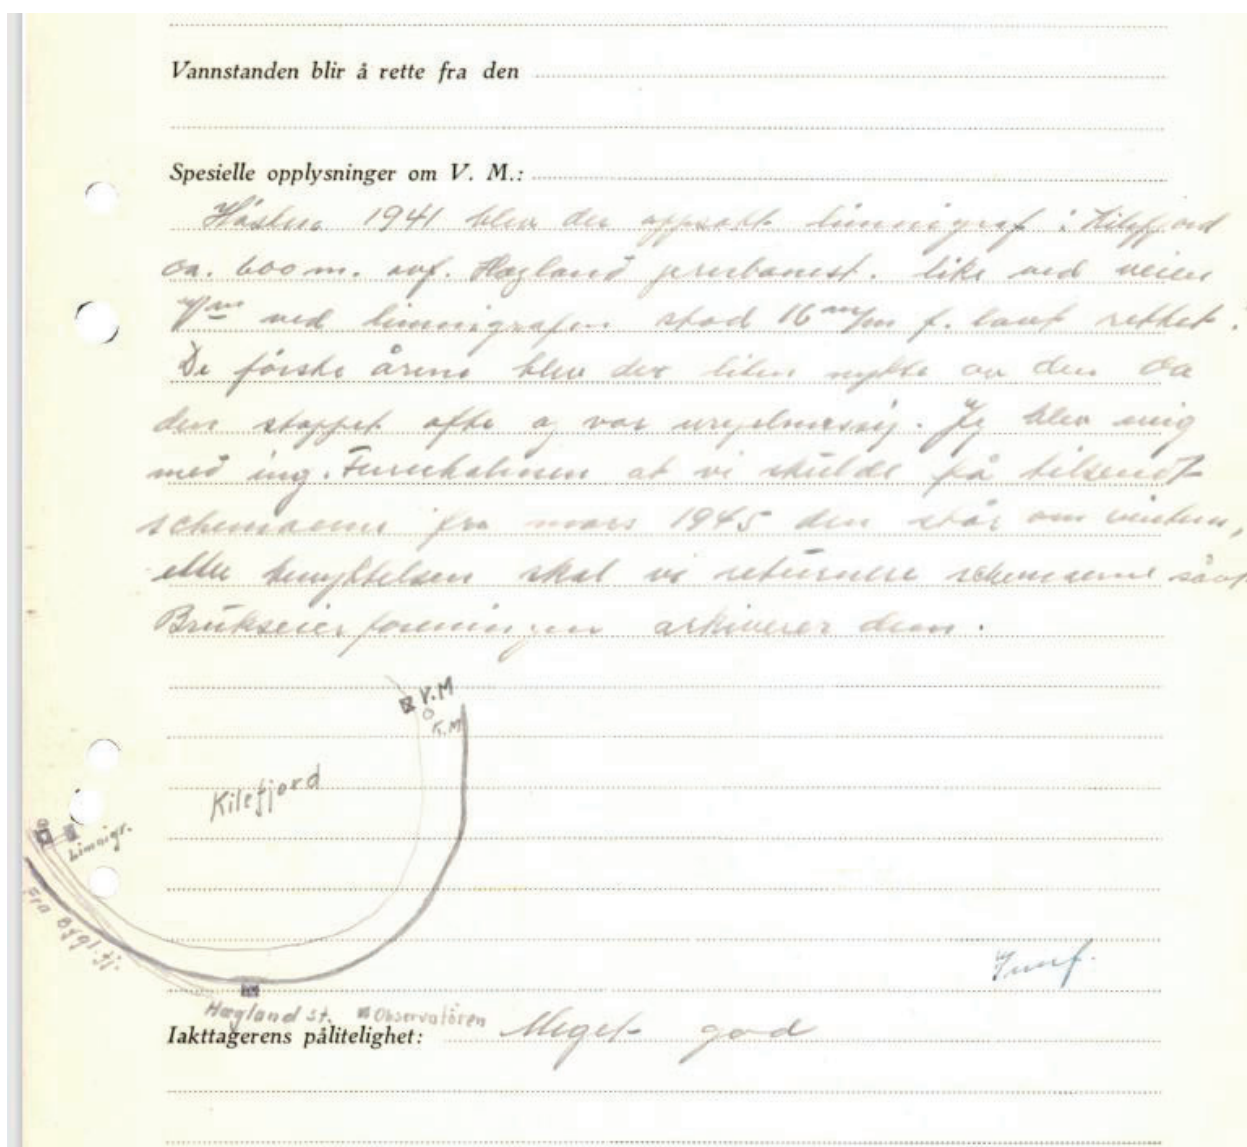 Vannstanden blir å rette fra den
Spesielle opplysninger om V. M.:
Høsten 1941 blev der oppsatt limnigraf i Kilefjord
ca. 600 m. ovf. Hægland jernbanest. like ved veien
V/m ved limnigrafen stod 16 m/m f. lavt rettet.
De første årene blev der liten nytte av den da
den stoppet ofte og var uregelmessig. Jeg blev enig
med ing. at vi skulde få tilsendt
schemaene fra mars 1945 den står om vinteren,
etter benyttelsen skal vi returnere schemaene
Brukseierforeningen arkiverer dem.
V.M
K.M
Kilefjord
Limnigr.
Fra Bygl.fj.
Hægland st. Observatören
Iakttagerens pålitelighet: Meget god